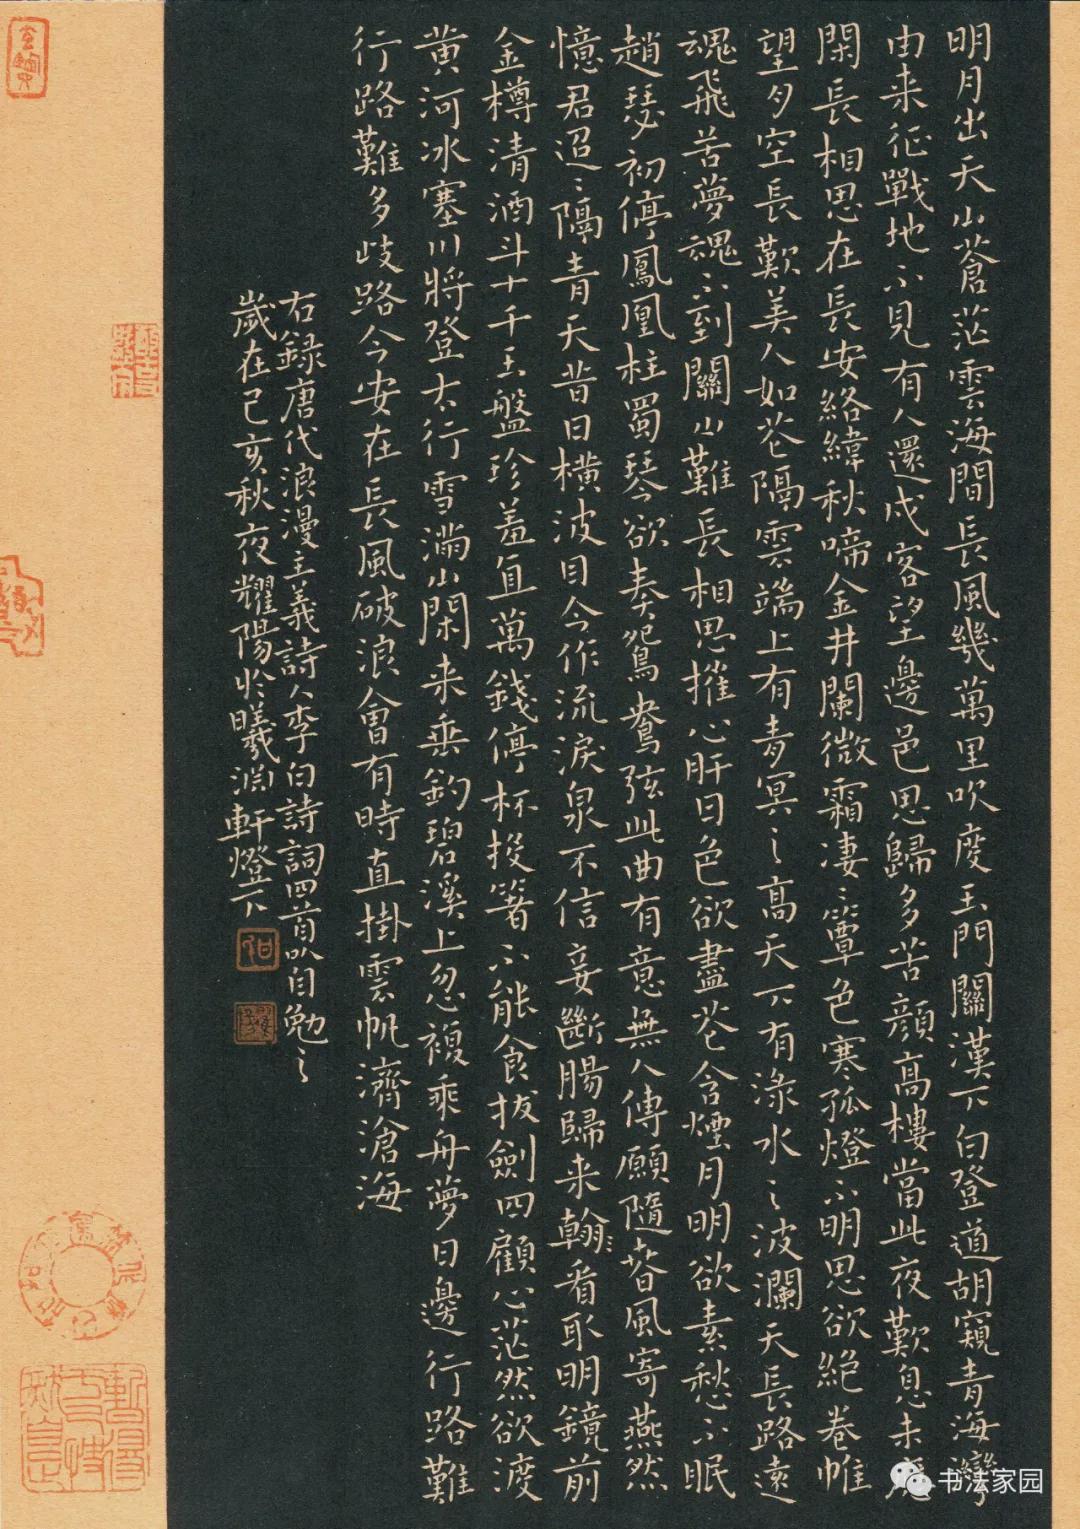 明月出天山蒼茫雲海間長風幾萬里吹度玉門關漢下白登道胡窺青海灣
由来征戰地不見有人還戍客望邊邑思歸多苦顔高樓當此夜歎息未應
閑長相思在長安絡緯秋啼金井闌微霜凄〻簟色寒孤燈不明思欲絕卷帷
望月空長歎美人如花隔雲端上有青冥之高天下有淥水之波瀾天長路遠
魂飛苦夢魂不到關山難長相思摧心肝日色欲盡花含煙月明欲素愁不眠
趙瑟初停鳳凰柱蜀琴欲奏鴛鴦弦此曲有意無人傳願隨春風寄燕然
憶君迢〻隔青天昔日横波目今作流淚泉不信妾斷腸歸来看取明鏡前
金樽清酒斗十千玉盤珍羞直萬錢停杯投箸不能食拔劍四顧心茫然欲渡
黄河冰塞川將登太行雪滿山閑来垂釣碧溪上忽複乘舟夢日邊行路難
行路難多歧路今安在長風破浪會有時直掛雲帆濟滄海
右録唐代浪漫主義詩人李白詩詞四首以自勉之
歲在己亥秋夜耀陽於曦淵軒燈下
书法家园